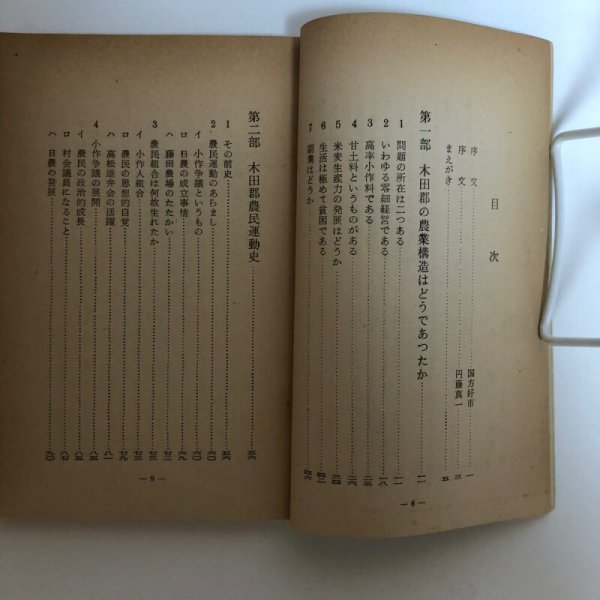 目次
序文……国方好市……一
序文……円藤真一……三
まえがき……五
第一部 木田郡の農業構造はどうであつたか
1 問題の所在は二つある……一一
2 いわゆる零細経営である……一八
3 高率小作料である……二三
4 甘土料というものがある……二六
5 米麦生産力の発展はどうか……三四
6 生活は極めて貧困である……四二
7 副業はどうか……四六
— 8 —
第二部 木田郡農民運動史
1 その前史……五六
2 農民運動のあらまし……六〇
イ 小作争議というもの……六〇
ロ 日農の成立事情……六九
ハ 藤田農場のたたかい……七三
3 農民組合は何故生れたか……七三
イ 小作人組合……七三
ロ 農民の思想的自覚……七九
ハ 高松雄弁会の活躍……八一
4 小作争議の展開……八五
イ 農民の政治的成長……八五
ロ 村会議員になること……八七
ハ 日農の発展……九〇
— 9 —